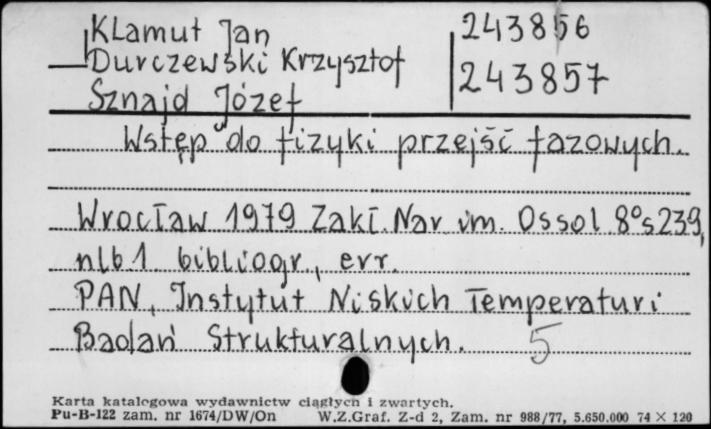 Klamut Jan 243856
Durczewski Krzysztof 243857
Sznajd Józef
Wstęp do fizyki przejść fazowych.
Wrocław 1979 Zakł. Nar im. Ossol 8°s239,
nlb 1 bibliogr., err.
PAN, Instytut Niskich Temperatur i
Badań Strukturalnych. 5
Karta katalogowa wydawnictw ciągłych i zwartych.
Pu-B-122 zam. nr 1674/DW/On W.Z.Graf. Z-d 2, Zam. nr 988/77, 5.650.000 74 × 120